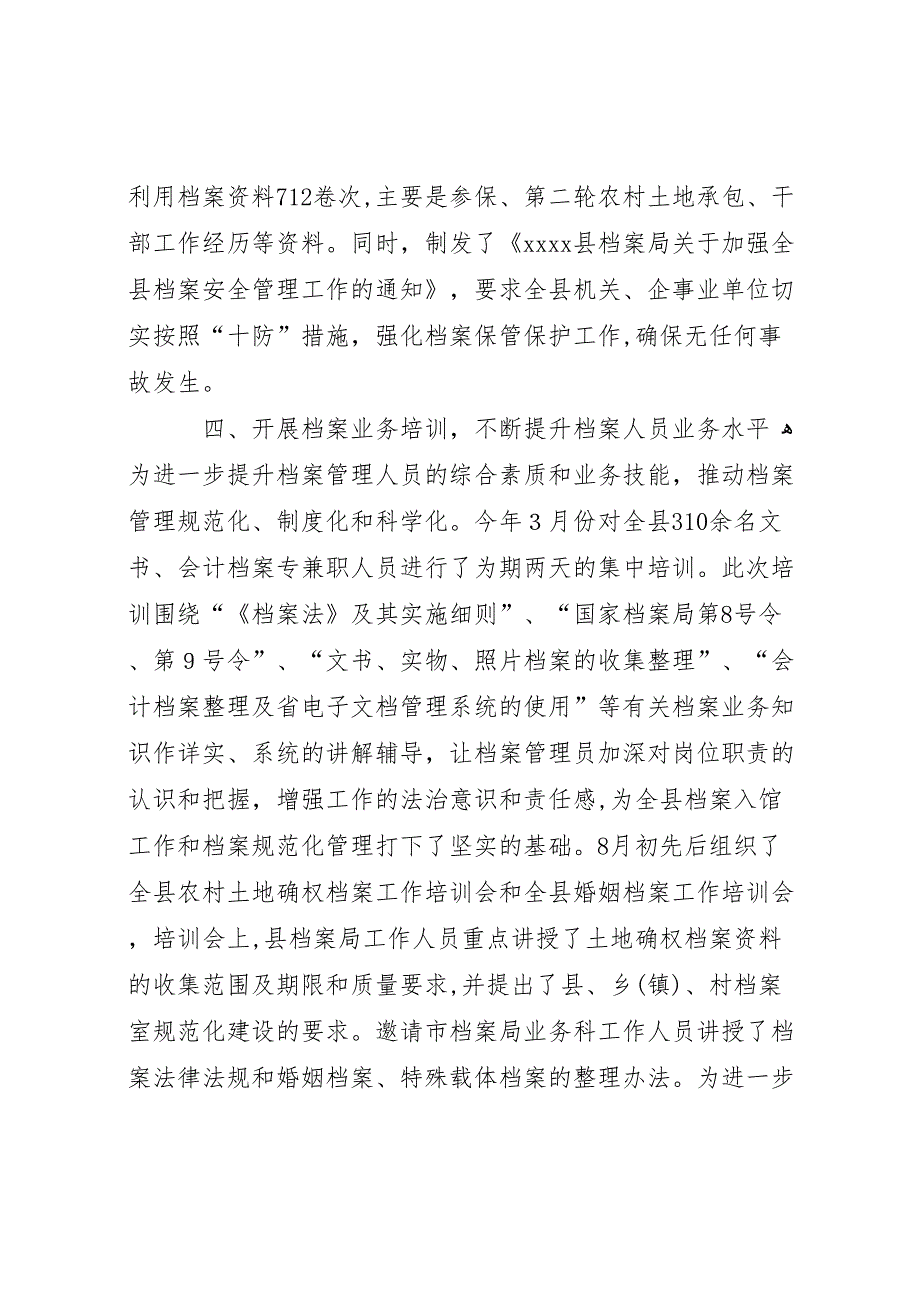 利用档案资料712卷次,主要是参保、第二轮农村土地承包、干
部工作经历等资料。同时，制发了《xxxx县档案局关于加强全
县档案安全管理工作的通知》，要求全县机关、企事业单位切
实按照“十防”措施，强化档案保管保护工作,确保无任何事
故发生。
四、开展档案业务培训，不断提升档案人员业务水平
为进一步提升档案管理人员的综合素质和业务技能，推动档案
管理规范化、制度化和科学化。今年３月份对全县310余名文
书、会计档案专兼职人员进行了为期两天的集中培训。此次培
训围绕“《档案法》及其实施细则”、“国家档案局第8号令
、第９号令”、“文书、实物、照片档案的收集整理”、“会
计档案整理及省电子文档管理系统的使用”等有关档案业务知
识作详实、系统的讲解辅导，让档案管理员加深对岗位职责的
认识和把握，增强工作的法治意识和责任感,为全县档案入馆
工作和档案规范化管理打下了坚实的基础。8月初先后组织了
全县农村土地确权档案工作培训会和全县婚姻档案工作培训会
，培训会上,县档案局工作人员重点讲授了土地确权档案资料
的收集范围及期限和质量要求,并提出了县、乡(镇)、村档案
室规范化建设的要求。邀请市档案局业务科工作人员讲授了档
案法律法规和婚姻档案、特殊载体档案的整理办法。为进一步